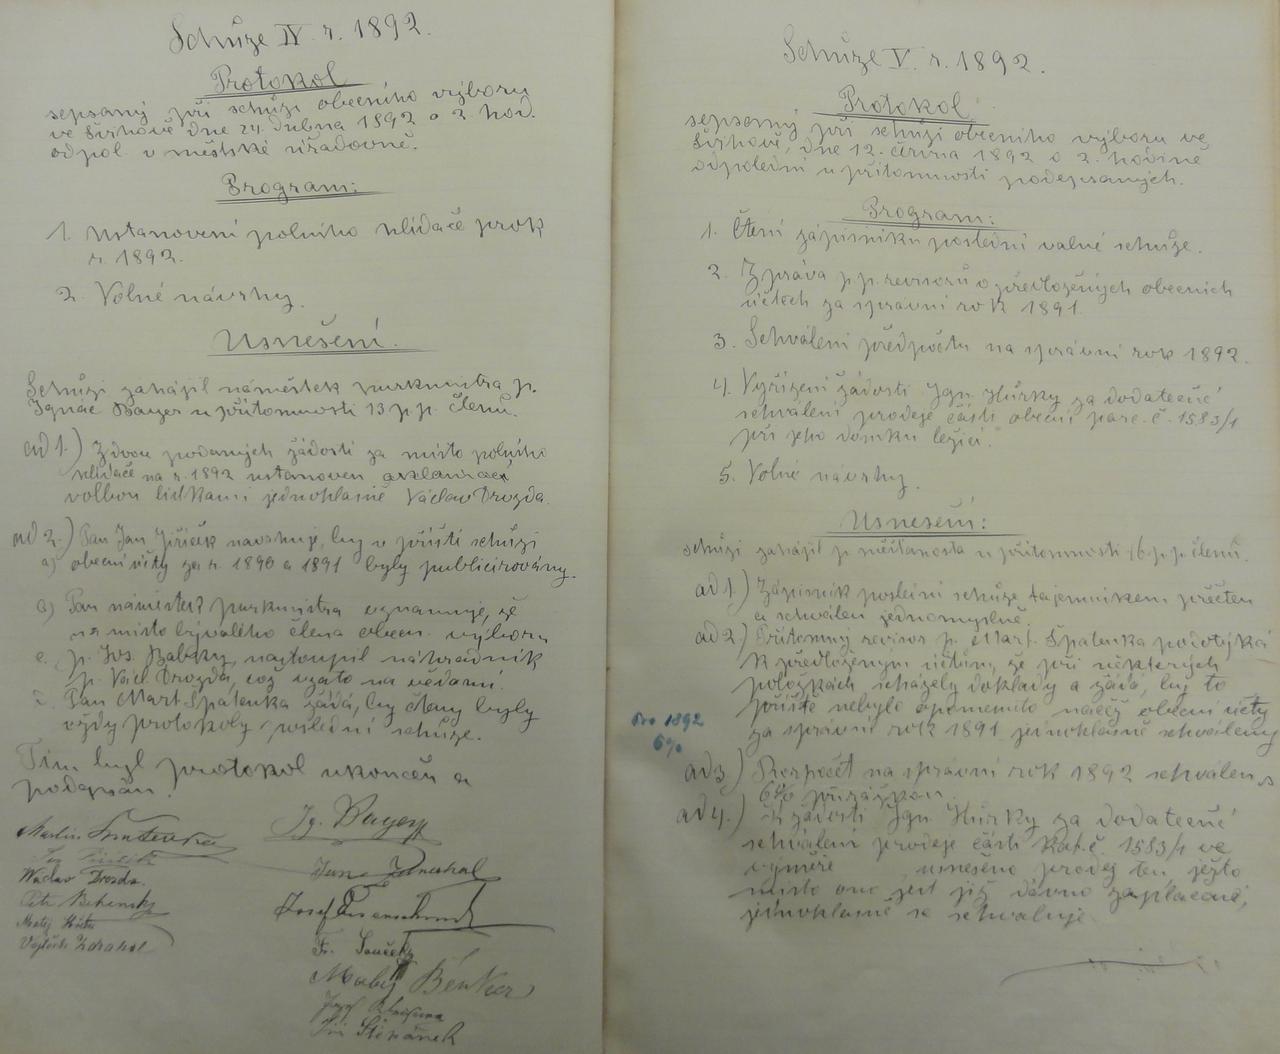 Schůze IV. r. 1892.
Protokol
sepsaný při schůzi obecního výboru
ve dne 24. dubna 1892 o 2. hod.
odpol. v městské úřadovně.
Program:
1. Ustanovení polního hlídače pro
r. 1892.
2. Volné návrhy.
Usnešení.
Schůzi zahájil náměstek purkmistra p.
Ignac Bayer u přítomnosti 13 p. p. členů.
ad 1.) Z dvou podaných žádostí za místo polního
hlídače na r. 1892 ustanoven
volbou lístkami jednohlasně Václav Drozda.
ad 2.) Pan Jan Jiřiček navrhuje, by v příští schůzi
a) obecní účty za r. 1890 a 1891 byly publicírovány.
Pan náměstek purkmistra oznamuje, že
na místo bývalého člena obecn. výboru
p. Jos. Babky, nastoupil náhradník
p. Václ. Drozda, což vzato na vědomí.
Pan Mart. Špatenka žádá, by čteny byly
vždy protokoly poslední schůze.
Tím byl protokol ukončen a
podepsán.
Martin
Ig. Bayer
Wáclav Drozda.
Josef
Fr. Souček
Matěj
Jiří Štěpánek
Schůze V. r. 1892.
Protokol
sepsaný při schůzi obecního výboru ve
dne 12. června 1892 o 2. hodině
odpolední u přítomnosti podepsaných.
Program:
1. Čtení zápisníku poslední valné schůze.
2. Zpráva p. p. revisorů o předložených obecních
účtech za správní rok 1891.
3. Schválení předpočtu na správní rok 1892.
4. Vyřízení žádosti Ign. Hůrky za dodatečné
schválení prodeje části obecní parc. č. 1583/1
při jeho domku ležící.
5. Volné návrhy.
Usnesení:
Schůzi zahájil p. měšťanosta u přítomnosti 16 p. p. členů.
ad 1.) Zápisník poslední schůze tajemníkem přečten
a schválen jednomyslně.
ad 2.) Přítomný revisor p. Mart. Špatenka podotýká
k předloženým účtům, že při některých
položkách scházely doklady a žádá, by to
příště nebylo opomenuto načež obecní účty
za správní rok 1891 jednohlasně schváleny
Pro 1892
6%
ad 3.) Rozpočet na správní rok 1892 schválen s
6%
ad 4.) K žádosti Ign. Hůrky za dodatečné
schválení prodeje části kat. č. 1583/1 ve
výměře usneseno prodej ten, ježto
místo ono jest již dávno zaplacené,
jednohlasně se schvaluje